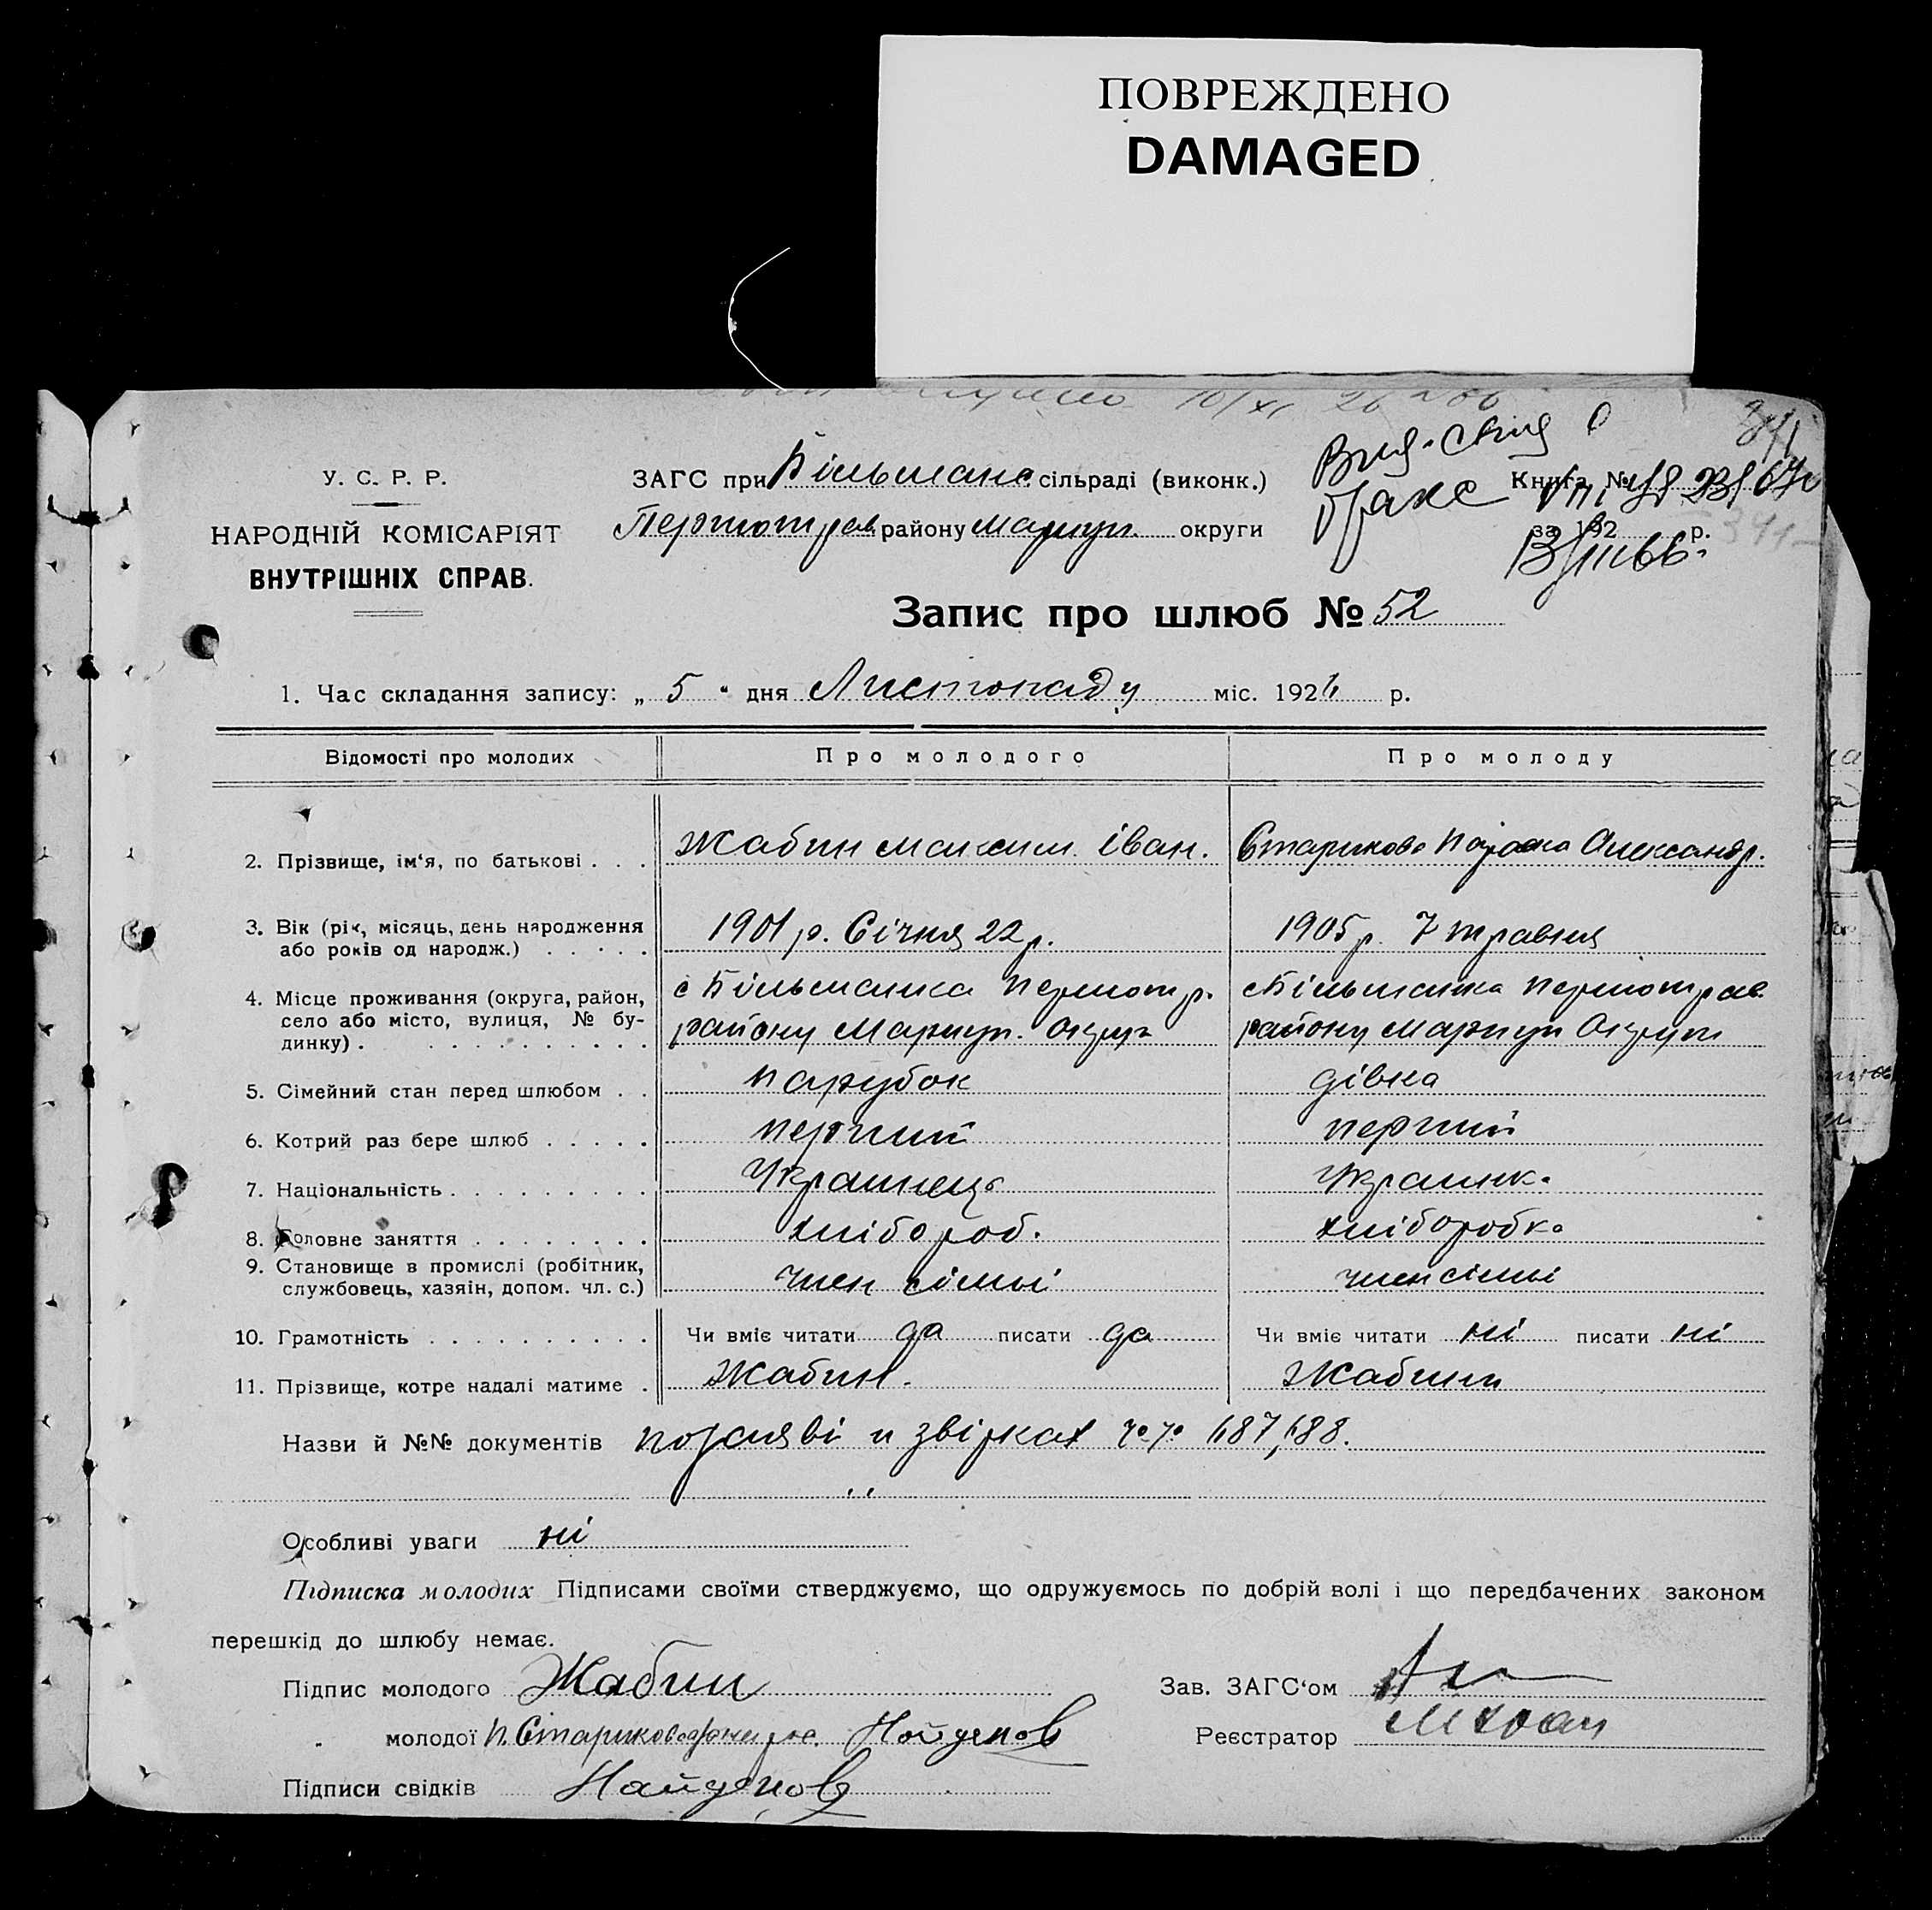 ПОВРЕЖДЕНО
DAMAGED
10/XI 26
У. С. Р. Р.
НАРОДНІЙ КОМІСАРІЯТ
ВНУТРІШНІХ СПРАВ.
ЗАГС при Більманс. сільраді (виконк.)
Першотрав району Маріуп. округи
Книга №
за 192 р.
Запис про шлюб № 52
1. Час складання запису: „ 5 “ дня Листопаду міс. 1926 р.
Відомості про молодих Про молодого Про молоду
2. Прізвище, ім‘я, по батькові . . . Жабин Максим Іван. Старикова Параска Олександр.
3. Вік (рік, місяць, день народження
або років од народж.) . . . . . 1901 р. Січня 22 р. 1905 р. 7 травня
4. Місце проживання (округа, район, с Більманка Першотр. с Більманка Першотрав.
село або місто, вулиця, № бу- району Маріуп. Округ району Маріуп Округи
динку) .
5. Сімейний стан перед шлюбом . . парубок дівка
6. Котрий раз бере шлюб . . . . . перший перший
7. Національність . . . . . . . . . Украинець Украинк.
8. Головне заняття . . . . . . . . хлібороб. хліборобка
9. Становище в промислі (робітник,
службовець, хазяін, допом. чл. с.) член сімьі член сімьі
10. Грамотність . . . . . . . . . . Чи вміє читати да писати да Чи вміє читати ні писати ні
11. Прізвище, котре надалі матиме . Жабин. Жабини
Назви й №№ документів по заяві и звірках 687, 688.
Особливі уваги ні
Підписка молодих Підписами своїми стверджуємо, що одружуємось по добрій волі і що передбачених законом
перешкід до шлюбу немає.
Підпис молодого Жабин Зав. ЗАГС‘ом
молодої П. Старикова Найденов Реєстратор
Підписи свідків Найденов